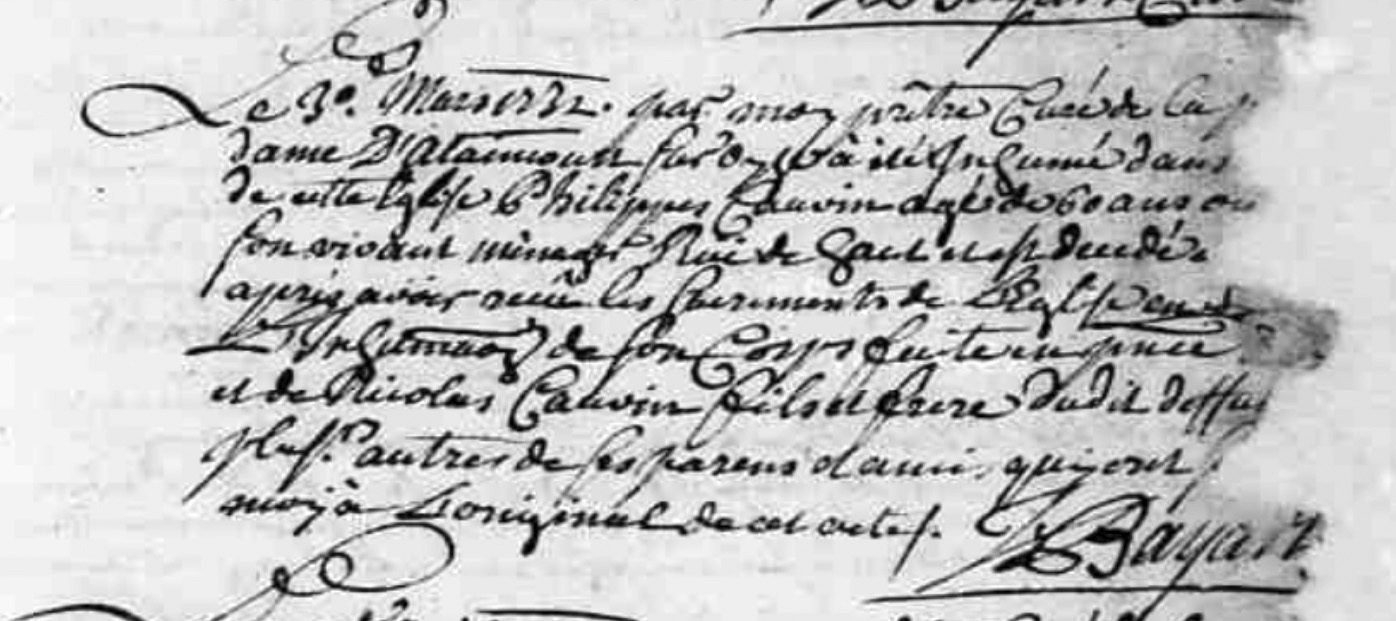 Le 3e. Mars 1732. par moy prêtre Curé de la p
dame D'ataincourt sur a été Inhumé dans
de cette Eglise Philippes Cauvin agé de 60 ans ou
son vivant ménagr Rüe de haut et est decedé
après avoir reçû les sacrements de L'Eglise
L'Inhumaon de son Corps faite en pnce
et de Nicolas Cauvin fils et frere dudit deffu
plusr. autres de ses parens et ami qui ont s
moy à L'original de cet acte.
Bayart